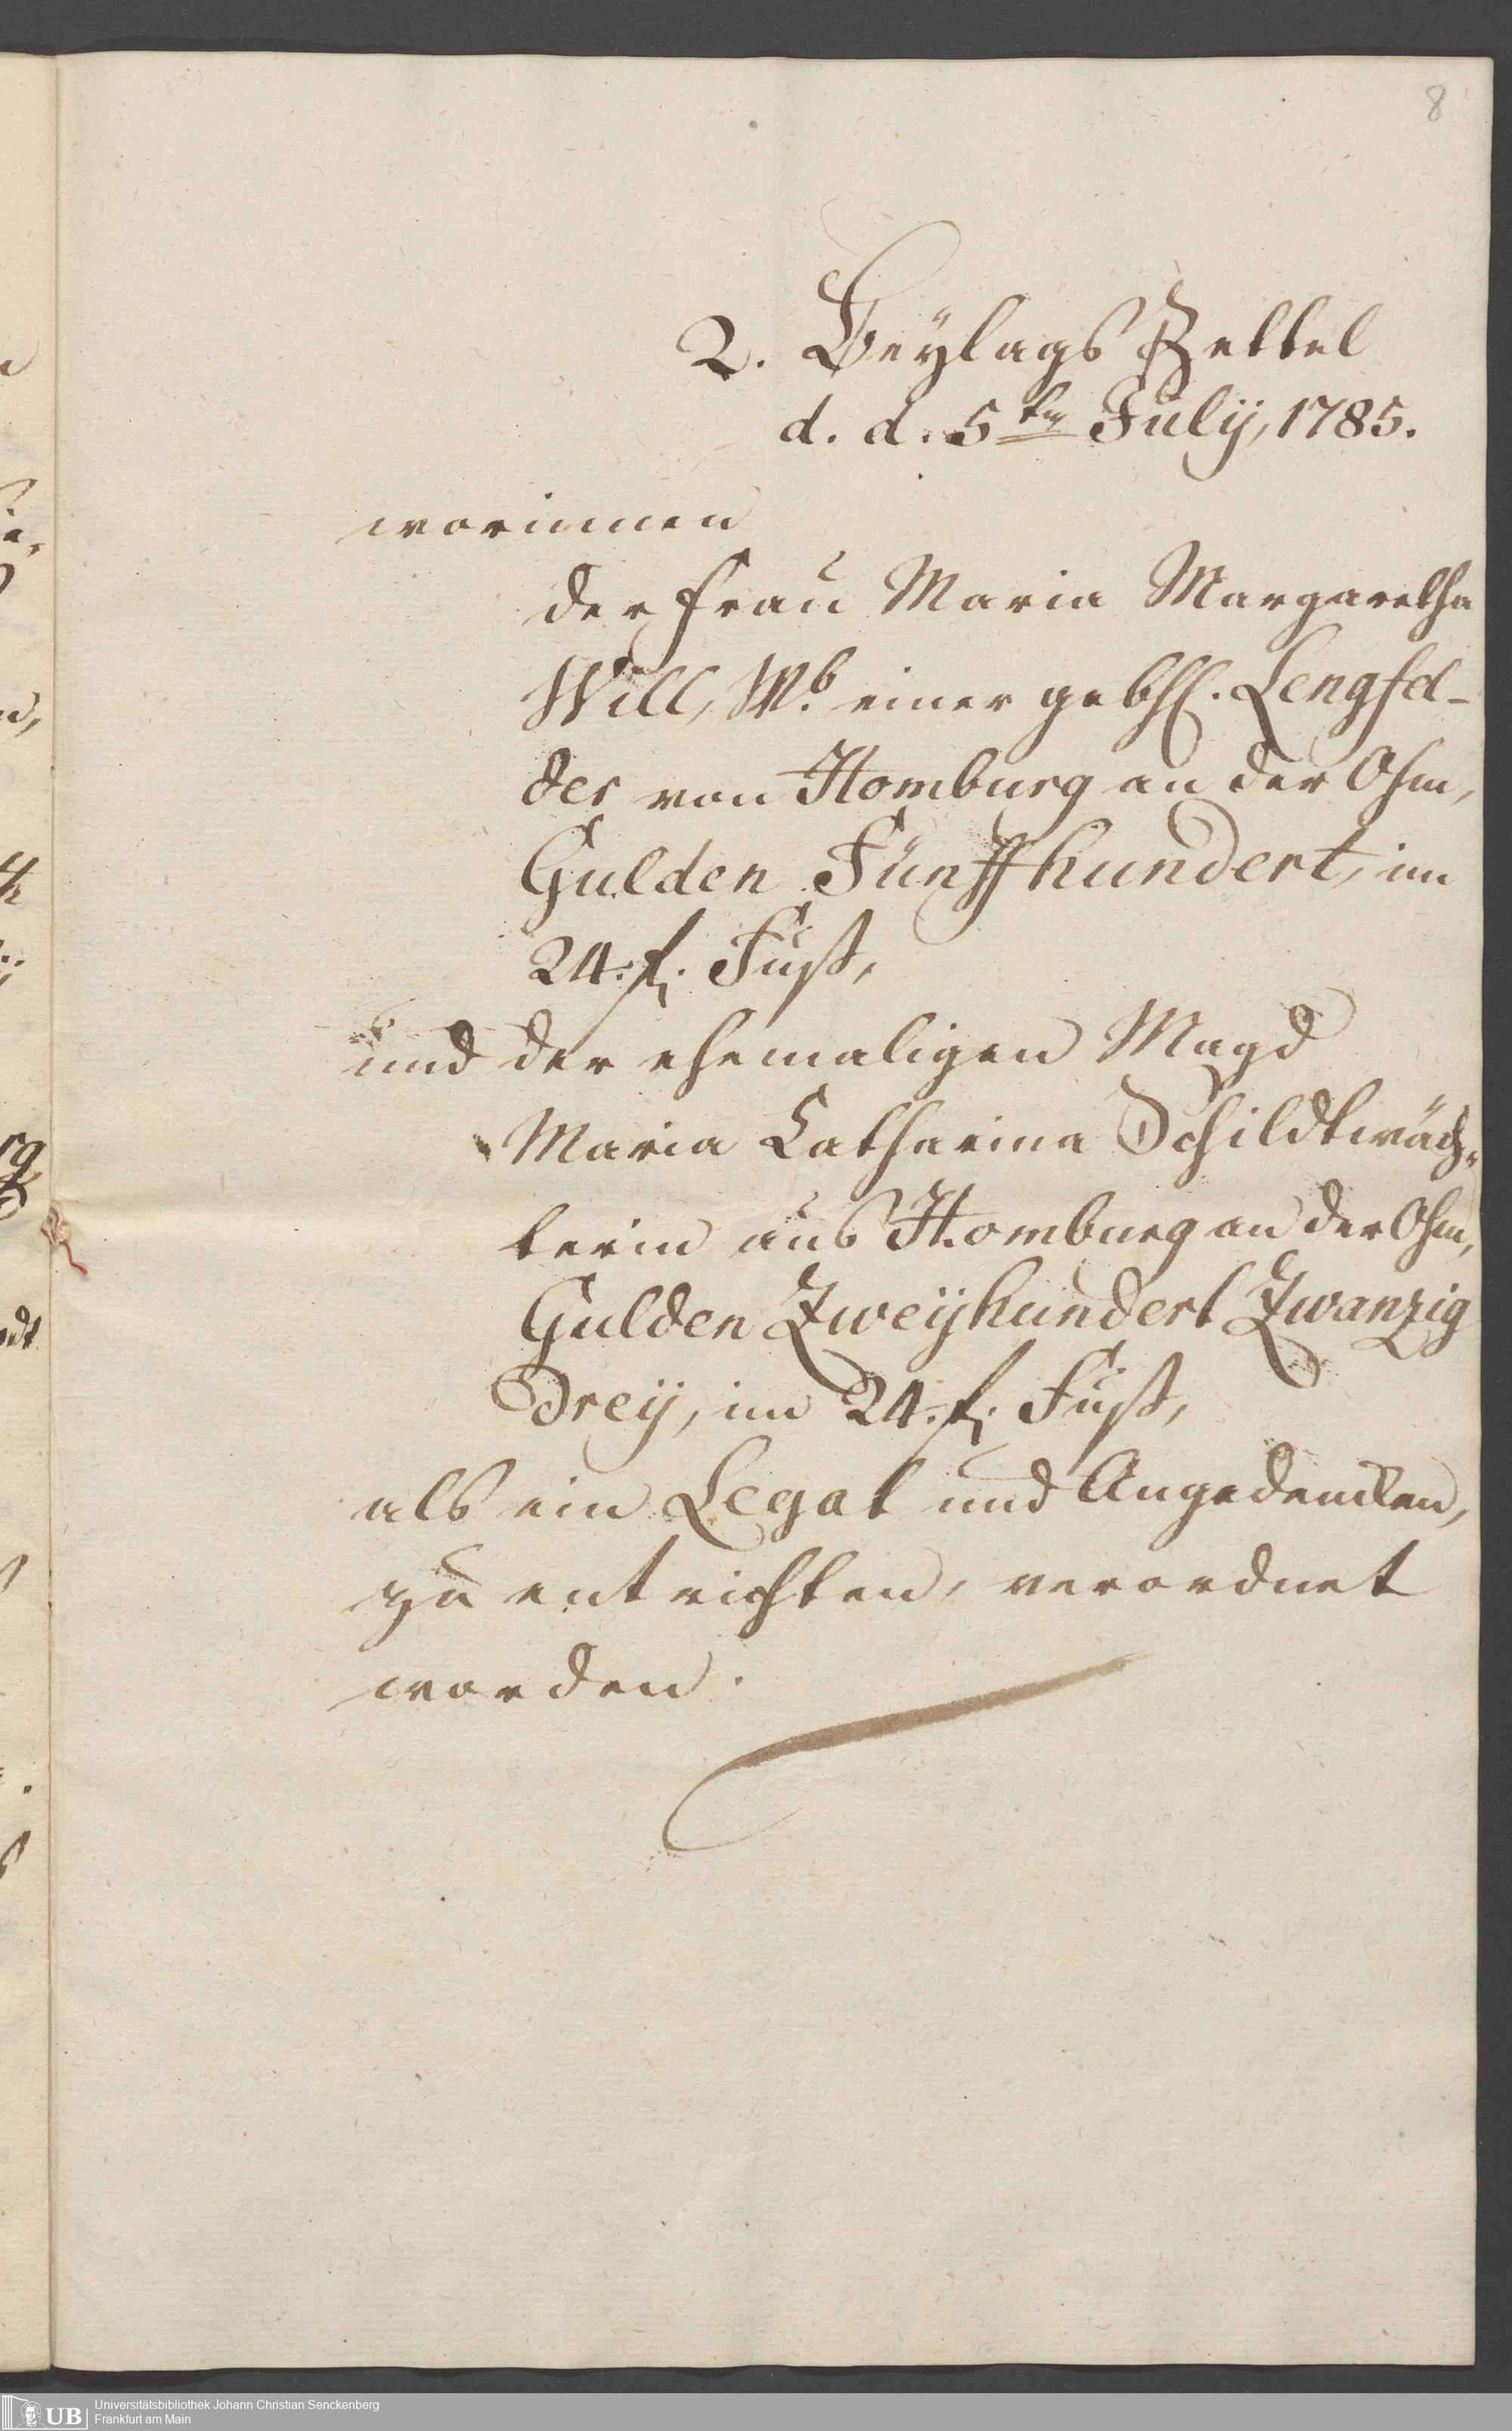 8
2. Beylags Zettel
d. d. 5ten July, 1785.
worinnen
der Frau Maria Margaretha
Will, Wb. einer gebhl. Lengfel-
der von Homburg an der Ohm,
Gulden Fünffhundert, im
24. fl. Fuß,
und der ehemaligen Magd
Maria Catharina Schildtwäch-
terin aus Homburg an der Ohm,
Gulden Zweyhundert Zwanzig
Drey, im 24. fl. Fuß,
als ein Legat und Angedencken,
zu entrichten, verordnet
worden.
UB Universitätsbibliothek Johann Christian Senckenberg
Frankfurt am Main